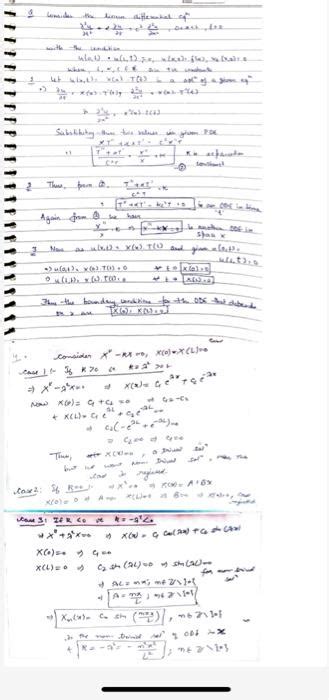 Q Consider the linear differential eqn
∂²u/∂t² + α ∂u/∂t = c² ∂²u/∂x², 0<x<L, t>0
with the condition
u(0,t) = u(L,t) = 0, u(x,0) = f(x), u_t(x,0) =
where L, α, c are constants
1 let u(x,t) = X(x) T(t) is a soln of a given eqn
⇒ ∂u/∂t = X(x) T'(t), ∂²u/∂t² = X(x) T''(t)
∂²u/∂x² = X''(x) T(t)
Substituting these two values in given PDE
XT'' + αXT' = c²X''T
⇒ T''+αT'/c²T = X''/X = K K is separation constant
2 Thus, from ②, T''+αT'/c²T = K
T''+αT' - Kc²T = 0 is an ODE in time 't'
Again from ② we have
X''/X = K ⇒ X'' - KX = 0 is another ODE in space x
3 Now as u(x,t) = X(x).T(t) and given u(0,t) = u(L,t) = 0
⇒ u(0,t) = X(0).T(t) = 0 X(0) = 0
u(L,t) = X(L).T(t) = 0 X(L) = 0
Thus the boundary conditions for the ODE that depends
on x are X(0) = X(L) = 0
4. Consider X'' - KX = 0, X(0) = X(L) = 0
Case 1:- If K>0 or K = λ² > 0
⇒ X'' - λ²X = 0 ⇒ X(x) = C₁ e^λx + C₂ e^-λx
Now X(0) = C₁ + C₂ = 0 ⇒ C₁ = -C₂
+ X(L) = C₁ e^λL + C₂ e^-λL = 0
⇒ C₂(-e^λL + e^-λL) = 0
⇒ C₂ = 0 ⇒ C₁ = 0
Thus, X(x) = 0, a trivial soln
but we want non trivial soln, so the
case is rejected.
Case 2: If K = 0 ⇒ X'' = 0 ⇒ X(x) = A + Bx
X(0) = 0 ⇒ A = 0 X(L) = 0 ⇒ B = 0 ⇒ X(x) = 0, rejected
Case 3: If K < 0 or K = -λ² < 0
⇒ X'' + λ²X = 0 ⇒ X(x) = C₁ cos(λx) + C₂ sin(λx)
X(0) = 0 ⇒ C₁ = 0
X(L) = 0 ⇒ C₂ sin(λL) = 0 ⇒ sin(λL) = 0 for non trivial soln
⇒ λL = nπ; n∈Z\{0}
⇒ λ = nπ/L; n∈Z\{0}
⇒ Xₙ(x) = Cₙ sin(nπx/L), n∈Z\{0}
is the non trivial soln of ODE in x
+ K = -λ² = -n²π²/L²; n∈Z\{0}